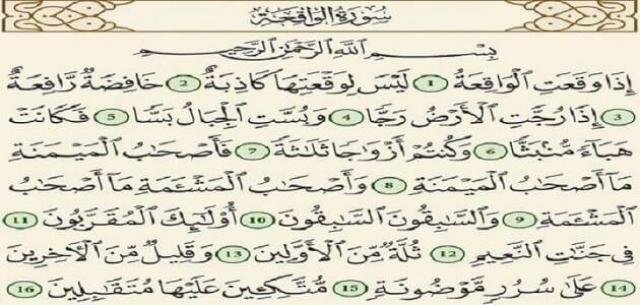 سُورَةُ الوَاقِعَةِ
بِسْمِ اللَّهِ الرَّحْمَٰنِ الرَّحِيمِ
إِذَا وَقَعَتِ الْوَاقِعَةُ ١ لَيْسَ لِوَقْعَتِهَا كَاذِبَةٌ ٢ خَافِضَةٌ رَّافِعَةٌ
٣ إِذَا رُجَّتِ الْأَرْضُ رَجًّا ٤ وَبُسَّتِ الْجِبَالُ بَسًّا ٥ فَكَانَتْ
هَبَاءً مُّنْبَثًّا ٦ وَكُنتُمْ أَزْوَاجًا ثَلَاثَةً ٧ فَأَصْحَابُ الْمَيْمَنَةِ
مَا أَصْحَابُ الْمَيْمَنَةِ ٨ وَأَصْحَابُ الْمَشْـَٔمَةِ مَا أَصْحَابُ
الْمَشْـَٔمَةِ ٩ وَالسَّابِقُونَ السَّابِقُونَ ١٠ أُولَٰئِكَ الْمُقَرَّبُونَ ١١
فِي جَنَّاتِ النَّعِيمِ ١٢ ثُلَّةٌ مِّنَ الْأَوَّلِينَ ١٣ وَقَلِيلٌ مِّنَ الْآخِرِينَ
١٤ عَلَىٰ سُرُرٍ مَّوْضُونَةٍ ١٥ مُّتَّكِـِٔينَ عَلَيْهَا مُتَقَابِلِينَ ١٦